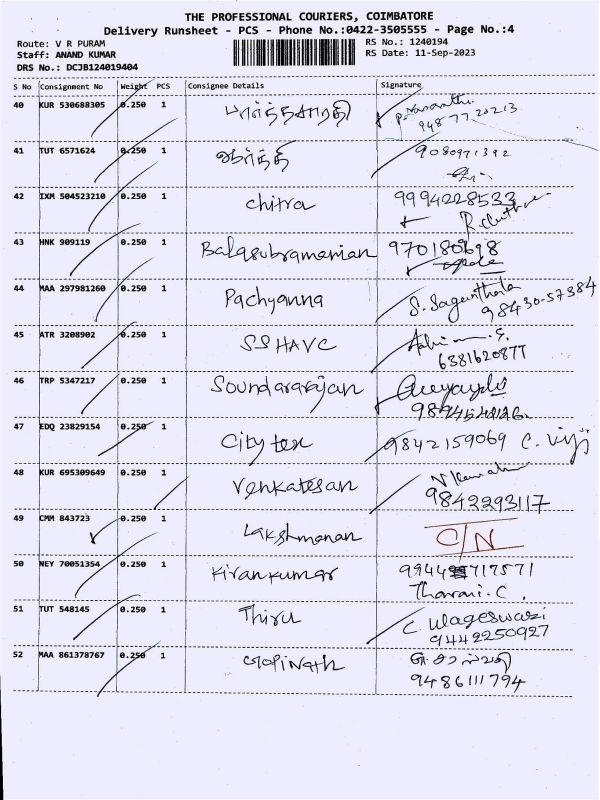 THE PROFESSIONAL COURIERS, COIMBATORE
Delivery Runsheet - PCS - Phone No.:0422-3505555 - Page No.:4
Route: V R PURAM
RS No.: 1240194
Staff: ANAND KUMAR
RS Date: 11-Sep-2023
DRS No.: DCJB124019404
S No Consignment No Weight PCS Consignee Details Signature
40 KUR 530688305 0.250 1 பார்த்தசாரதி
94877 20213
41 TUT 6571624 0.250 1 ஆர்த்தி 9080971392
42 IXM 504523210 0.250 1 chitra 9994228533
43 HNK 909119 0.250 1 Balasubramanian
44 MAA 297981260 0.250 1 Pachyanna
98430-57384
45 ATR 3208902 0.250 1 SSHAVC
6381620877
46 TRP 5347217 0.250 1 Soundararajan
47 EDQ 23829154 0.250 1 City tex 9842159069 C. Viji
48 KUR 695309649 0.250 1 Venkatesan
9842293117
49 CMM 843723 0.250 1 Lakshmanan C/N
50 NEY 70051354 0.250 1 Kirankumar
Tharani. C.
51 TUT 548145 0.250 1 Thiru C. Wageswari
9442250927
52 MAA 861378767 0.250 1 Gopinath
9486111794